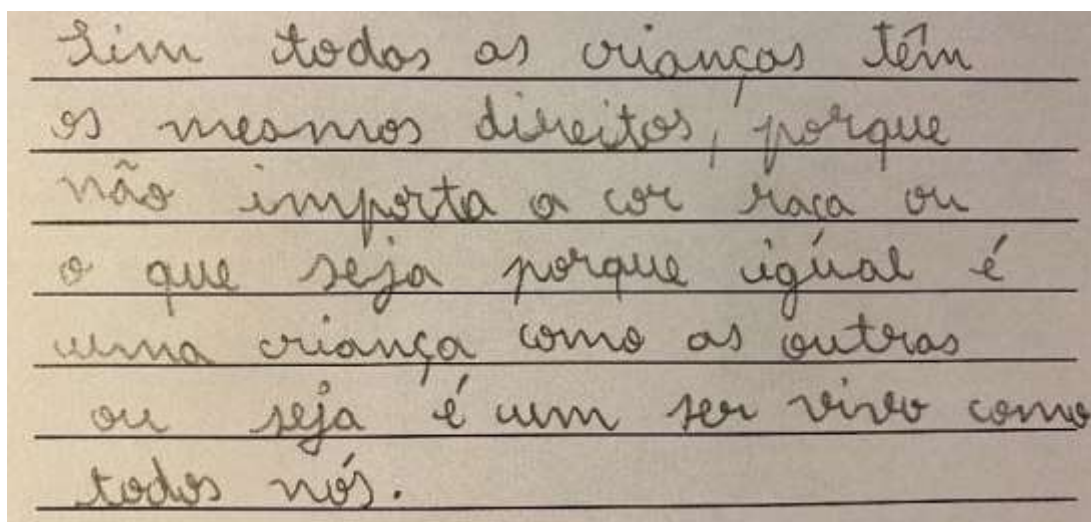 Sim todas as crianças têm
os mesmos direitos, porque
não importa a cor raça ou
o que seja porque igúal é
uma criança como as outras
ou seja é um ser vivo como
todos nós.